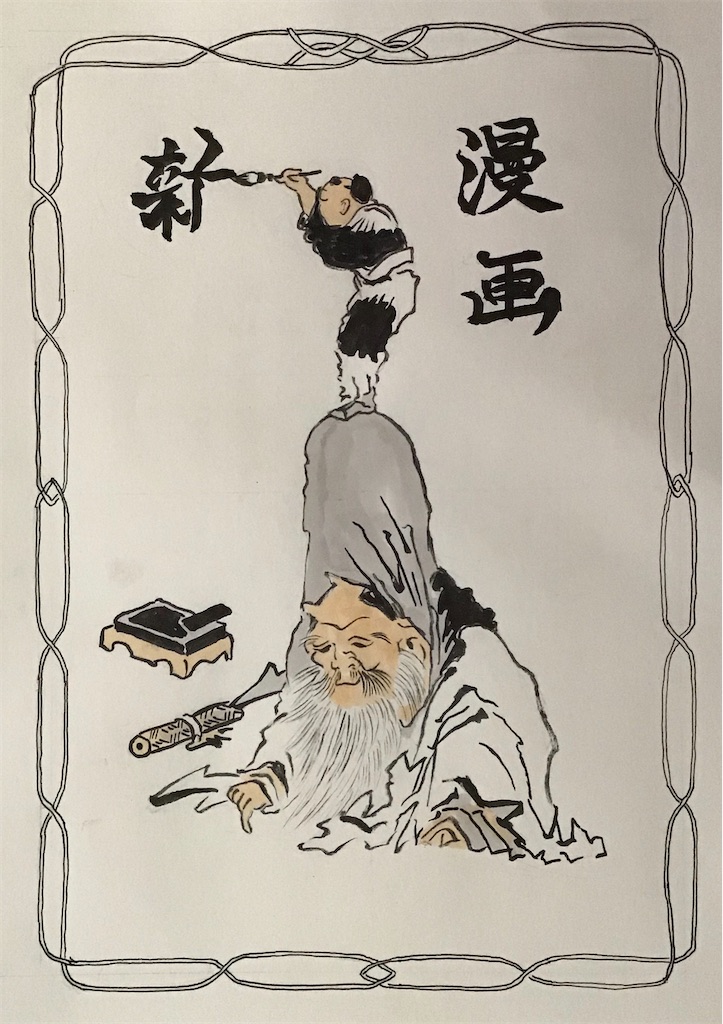 漫画
新